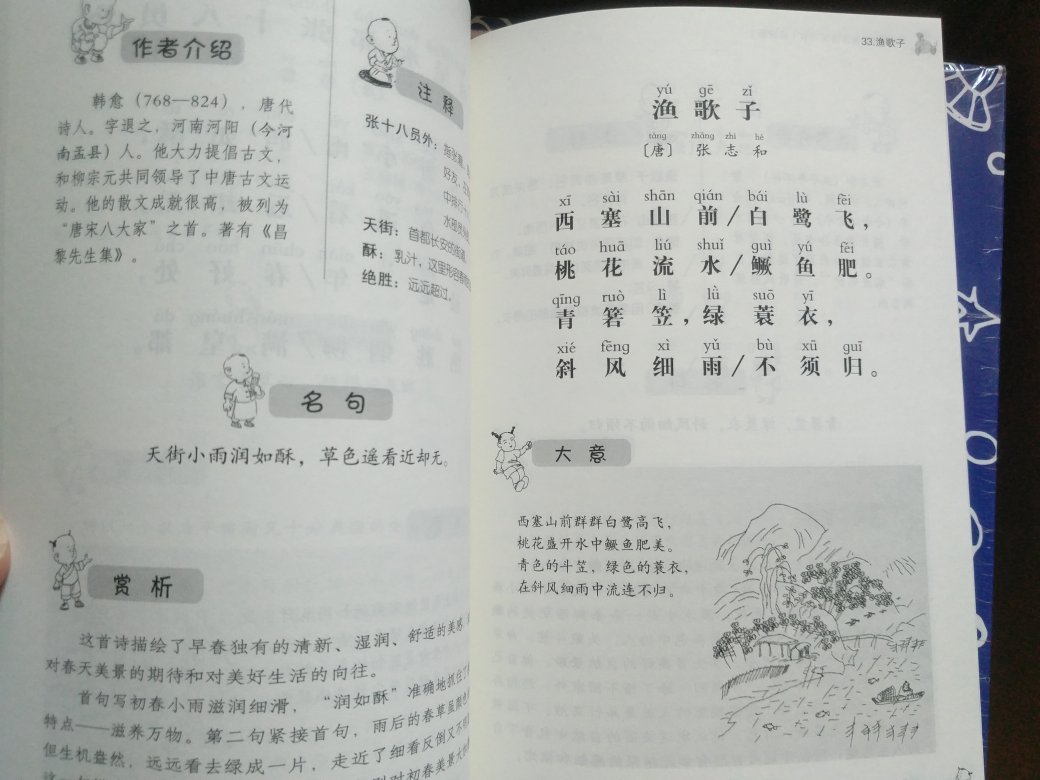 作者介绍
韩愈（768—824），唐代
诗人。字退之，河南河阳（今河
南孟县）人。他大力提倡古文，
和柳宗元共同领导了中唐古文运
动。他的散文成就很高，被列为
“唐宋八大家”之首。著有《昌
黎先生集》。
注释
张十八员外：
好友，
中排行
水
天街：首都长安的街道。
酥：乳汁，这里形容春
绝胜：远远超过。
名句
天街小雨润如酥，草色遥看近却无。
赏析
这首诗描绘了早春独有的清新、湿润、舒适的美感，
对春天美景的期待和对美好生活的向往。
首句写初春小雨滋润细滑，“润如酥”准确地抓住了
特点——滋养万物。第二句紧接首句，雨后的春草虽颜色
但生机盎然，远远看去绿成一片，走近了细看反倒又不
对初春美景大
33.渔歌子
yú gē zǐ
渔歌子
táng zhāng zhì hé
〔唐〕张志和
xī sài shān qián bái lù fēi
西塞山前/白鹭飞，
táo huā liú shuǐ guì yú féi
桃花流水/鳜鱼肥。
qīng ruò lì lǜ suō yī
青箬笠，绿蓑衣，
xié fēng xì yǔ bù xū guī
斜风细雨/不须归。
大意
西塞山前群群白鹭高飞，
桃花盛开水中鳜鱼肥美。
青色的斗笠，绿色的蓑衣，
在斜风细雨中流连不归。